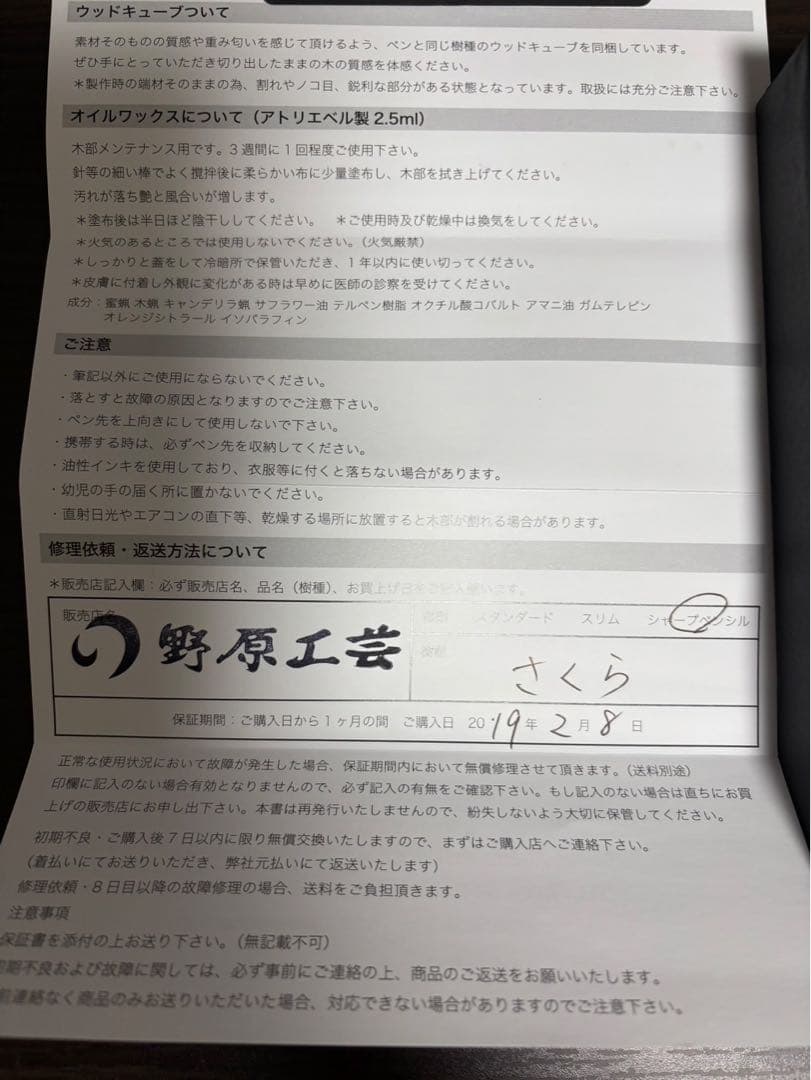 ウッドキューブついて
素材そのものの質感や重み匂いを感じて頂けるよう、ペンと同じ樹種のウッドキューブを同梱しています。
ぜひ手にとっていただき切り出したままの木の質感を体感ください。
＊製作時の端材そのままの為、割れやノコ目、鋭利な部分がある状態となっています。取扱には充分ご注意下さい。
オイルワックスについて（アトリエベル製 2.5ml）
木部メンテナンス用です。3週間に1回程度ご使用下さい。
針等の細い棒でよく攪拌後に柔らかい布に少量塗布し、木部を拭き上げてください。
汚れが落ち艶と風合いが増します。
＊塗布後は半日ほど陰干ししてください。　＊ご使用時及び乾燥中は換気をしてください。
＊火気のあるところでは使用しないでください。（火気厳禁）
＊しっかりと蓋をして冷暗所で保管いただき、1年以内に使い切ってください。
＊皮膚に付着し外観に変化がある時は早めに医師の診察を受けてください。
成分：蜜蝋 木蝋 キャンデリラ蝋 サフラワー油 テルペン樹脂 オクチル酸コバルト アマニ油 ガムテレピン
オレンジシトラール イソパラフィン
ご注意
・筆記以外にご使用にならないでください。
・落とすと故障の原因となりますのでご注意下さい。
・ペン先を上向きにして使用しないで下さい。
・携帯する時は、必ずペン先を収納してください。
・油性インキを使用しており、衣服等に付くと落ちない場合があります。
・幼児の手の届く所に置かないでください。
・直射日光やエアコンの直下等、乾燥する場所に放置すると木部が割れる場合があります。
修理依頼・返送方法について
＊販売店記入欄：必ず販売店名、品名（樹種）、お買上げ日をご記入願います。
販売店名
野原工芸
スタンダード　スリム　シャープペンシル
樹種
さくら
保証期間：ご購入日から1ヶ月の間　ご購入日　2019年2月8日
正常な使用状況において故障が発生した場合、保証期間内において無償修理させて頂きます。（送料別途）
印欄に記入のない場合有効となりませんので、必ず記入の有無をご確認下さい。もし記入のない場合は直ちにお買
上げの販売店にお申し出下さい。本書は再発行いたしませんので、紛失しないよう大切に保管してください。
初期不良・ご購入後7日以内に限り無償交換いたしますので、まずはご購入店へご連絡下さい。
（着払いにてお送りいただき、弊社元払いにて返送いたします）
修理依頼・8日目以降の故障修理の場合、送料をご負担頂きます。
注意事項
保証書を添付の上お送り下さい。（無記載不可）
期不良および故障に関しては、必ず事前にご連絡の上、商品のご返送をお願いいたします。
前連絡なく商品のみお送りいただいた場合、対応できない場合がありますのでご注意下さい。